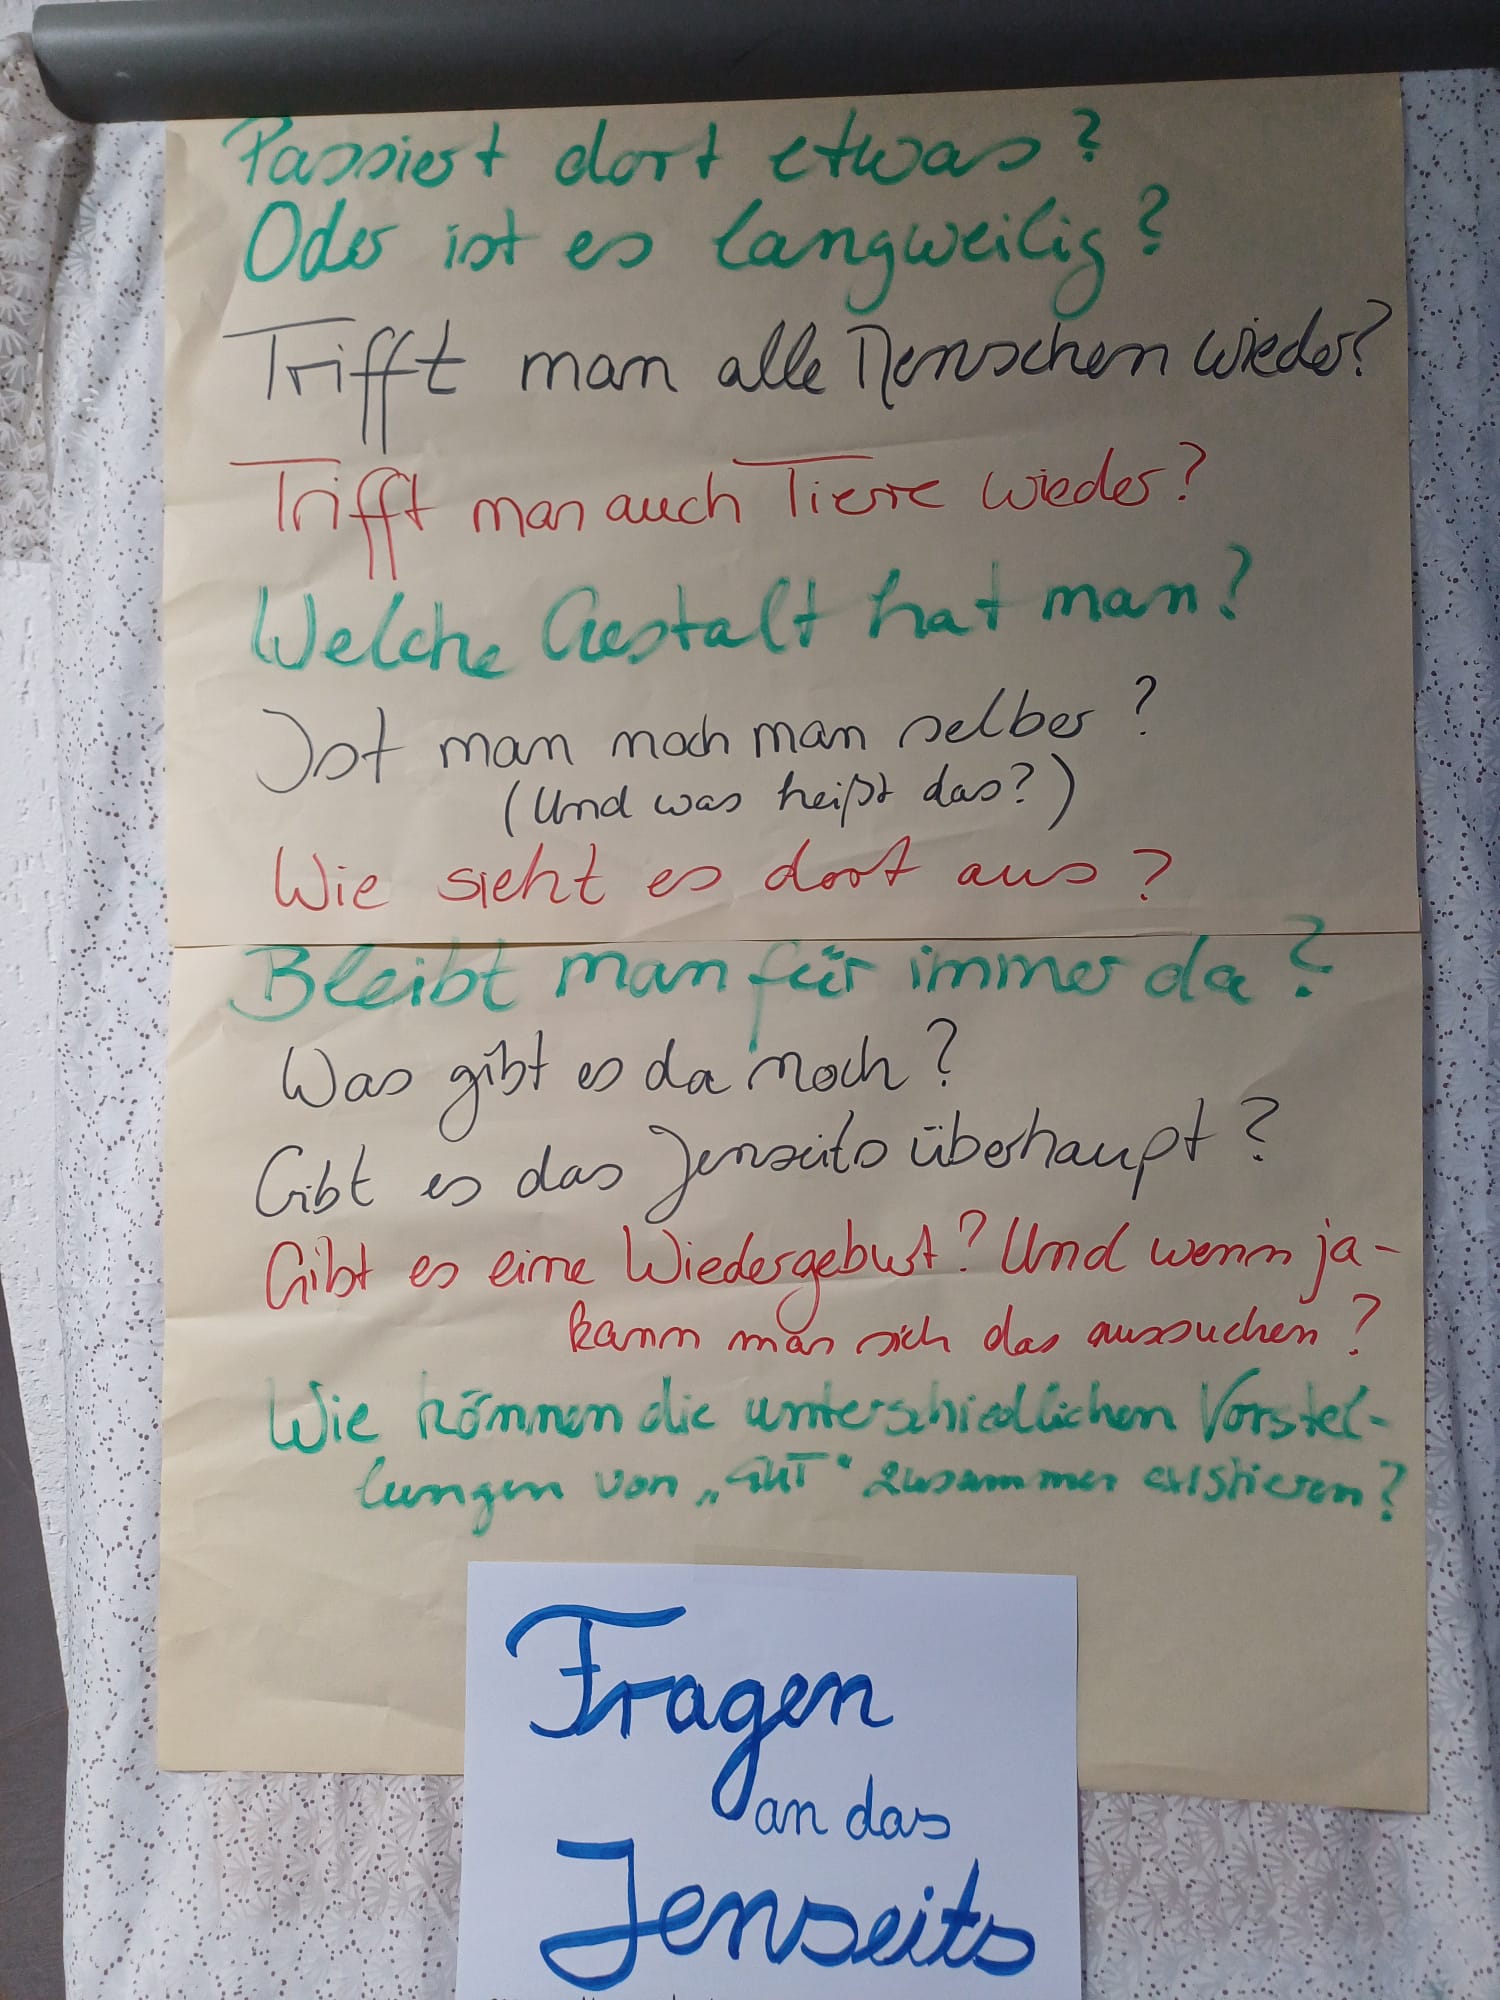 Passiert dort etwas?
Oder ist es langweilig?
Trifft man alle Menschen wieder?
Trifft man auch Tiere wieder?
Welche Gestalt hat man?
Ist man noch man selber?
(Und was heißt das?)
Wie sieht es dort aus?
Bleibt man für immer da?
Was gibt es da noch?
Gibt es das Jenseits überhaupt?
Gibt es eine Wiedergeburt? Und wenn ja -
kann man sich das aussuchen?
Wie können die unterschiedlichen Vorstel-
lungen von „GUT“ zusammen existieren?
Fragen
an das
Jenseits